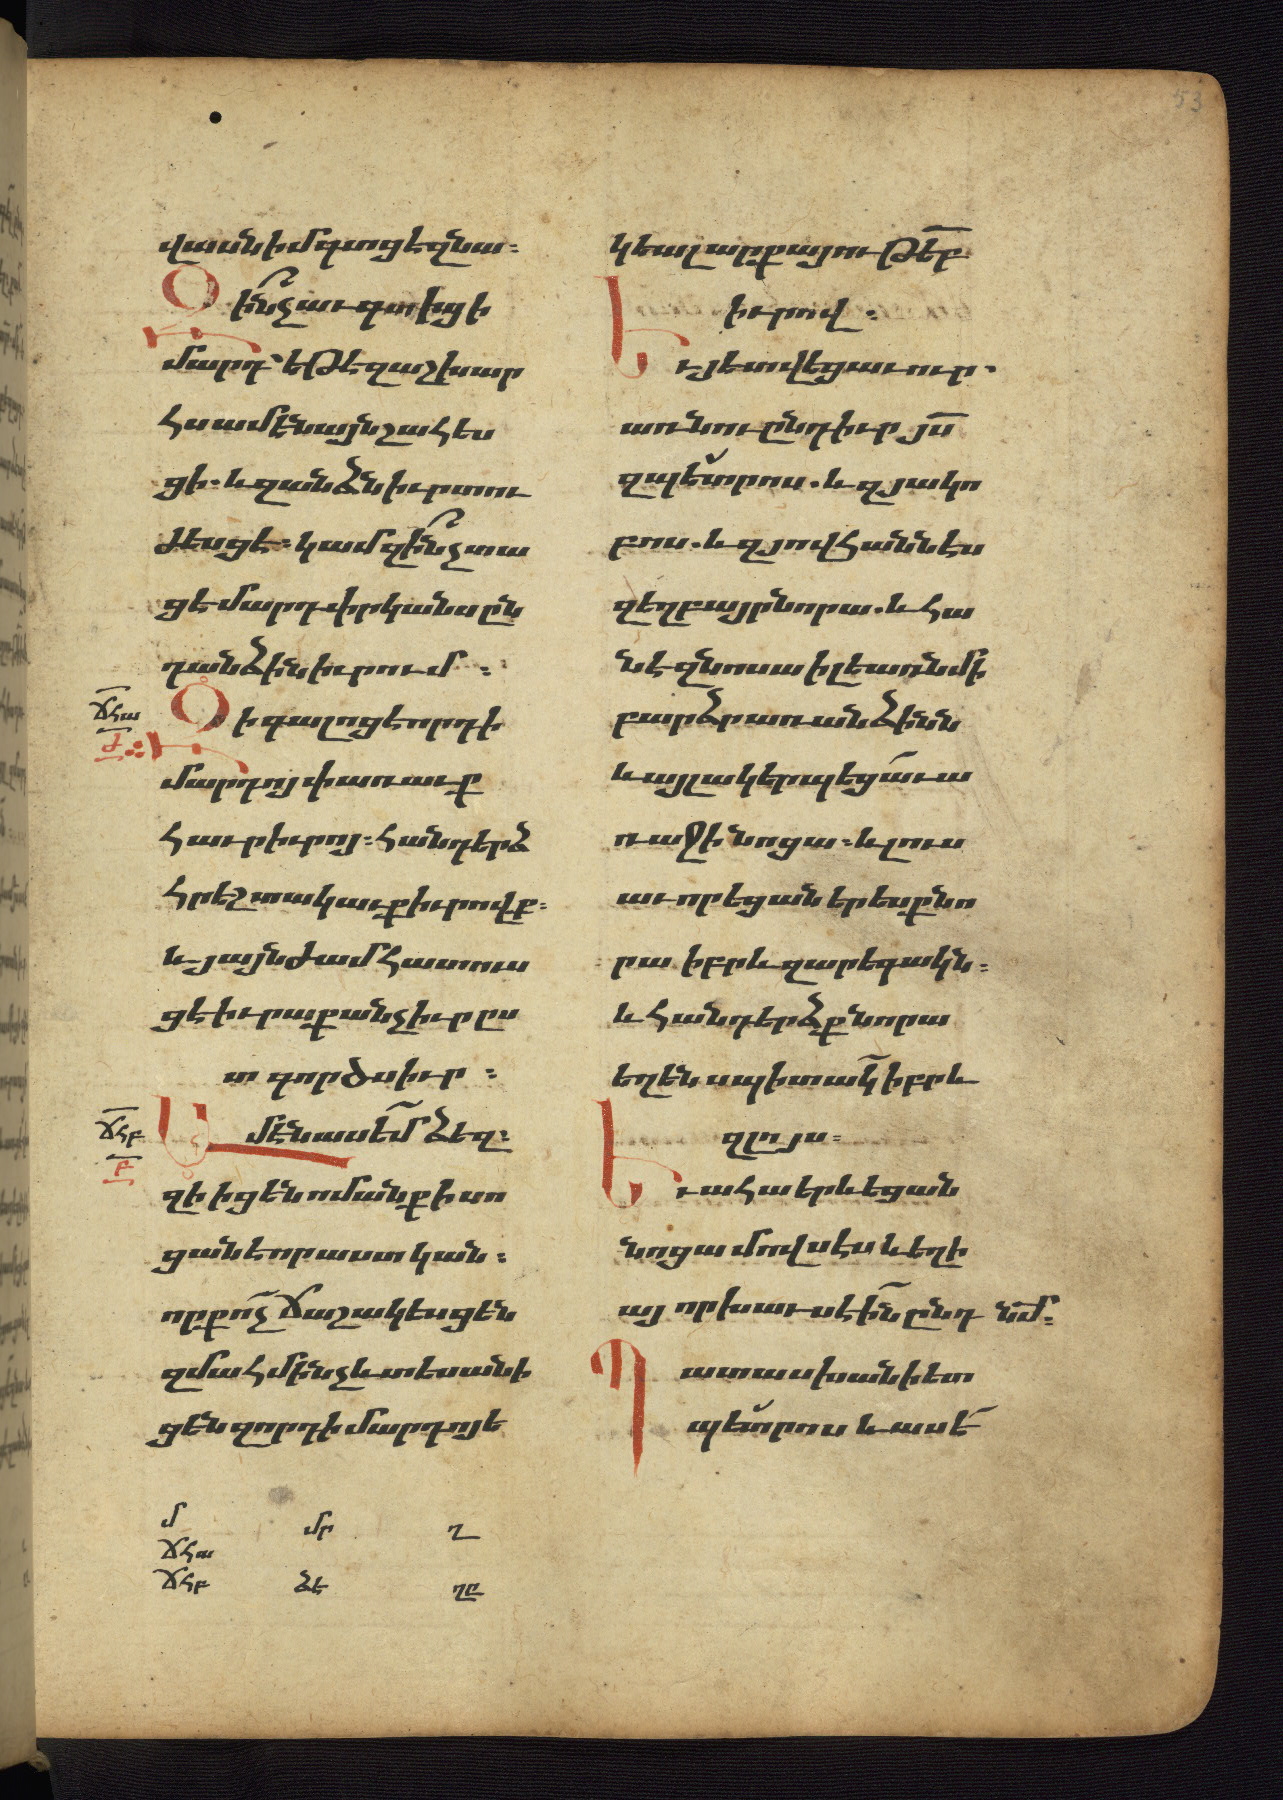 53
վասն իմ գտցէ զնա։
Զինչ աւգտիցի
մարդ՝ եթէ զաշխար
հս ամենայն շահես
ցի. և զանձն իւր տու
ժեսցէ։ կամ զինչ տա
ցէ մարդ փրկանս ըն
դ անձին իւրում ։
ՃՀա
Զի գալոց է որդի
Ժ
մարդոյ փառաւք
հաւր իւրոյ։ հանդերձ
հրեշտակաւք իւրովք։
և յայնժամ հատուս
ցէ իւրաքանչիւր ըս
տ գործս իւր ։
ՃՀբ
Ամէն ասեմ ձեզ։
Բ
զի իցեն ոմանք ի սո
ցանէ որ աստ կան ։
որք ոչ ճաշակեսցեն
զմահ մինչև տեսանի
ցեն զորդի մարդոյ ե
կեալ արքայութեբ
իւրով ։
Եւ յետ վեց աւուր.
առնու ընդ իւր յս
զպետրոս. և զյակո
բոս. և զյովհաննէս
զեղբայր նորա. և հա
նէ զնոսա ի լեառն մի
բարձր առանձինն
և այլակերպեցաւ ա
ռաջի նոցա։ և լուս
աւորեցան երեսք նո
րա իբրև զարեգակն։
և հանդերձք նորա
եղեն սպիտակ իբրև
զլոյս։
Եւ ահա երևեցան
նոցա մովսէս և եղի
այ որ խաւսէին ընդ նմ։
Պատասխանի ետ
պետրոս և ասէ
մ մր ղ
ՃՀա
ՃՀբ ձէ ղը